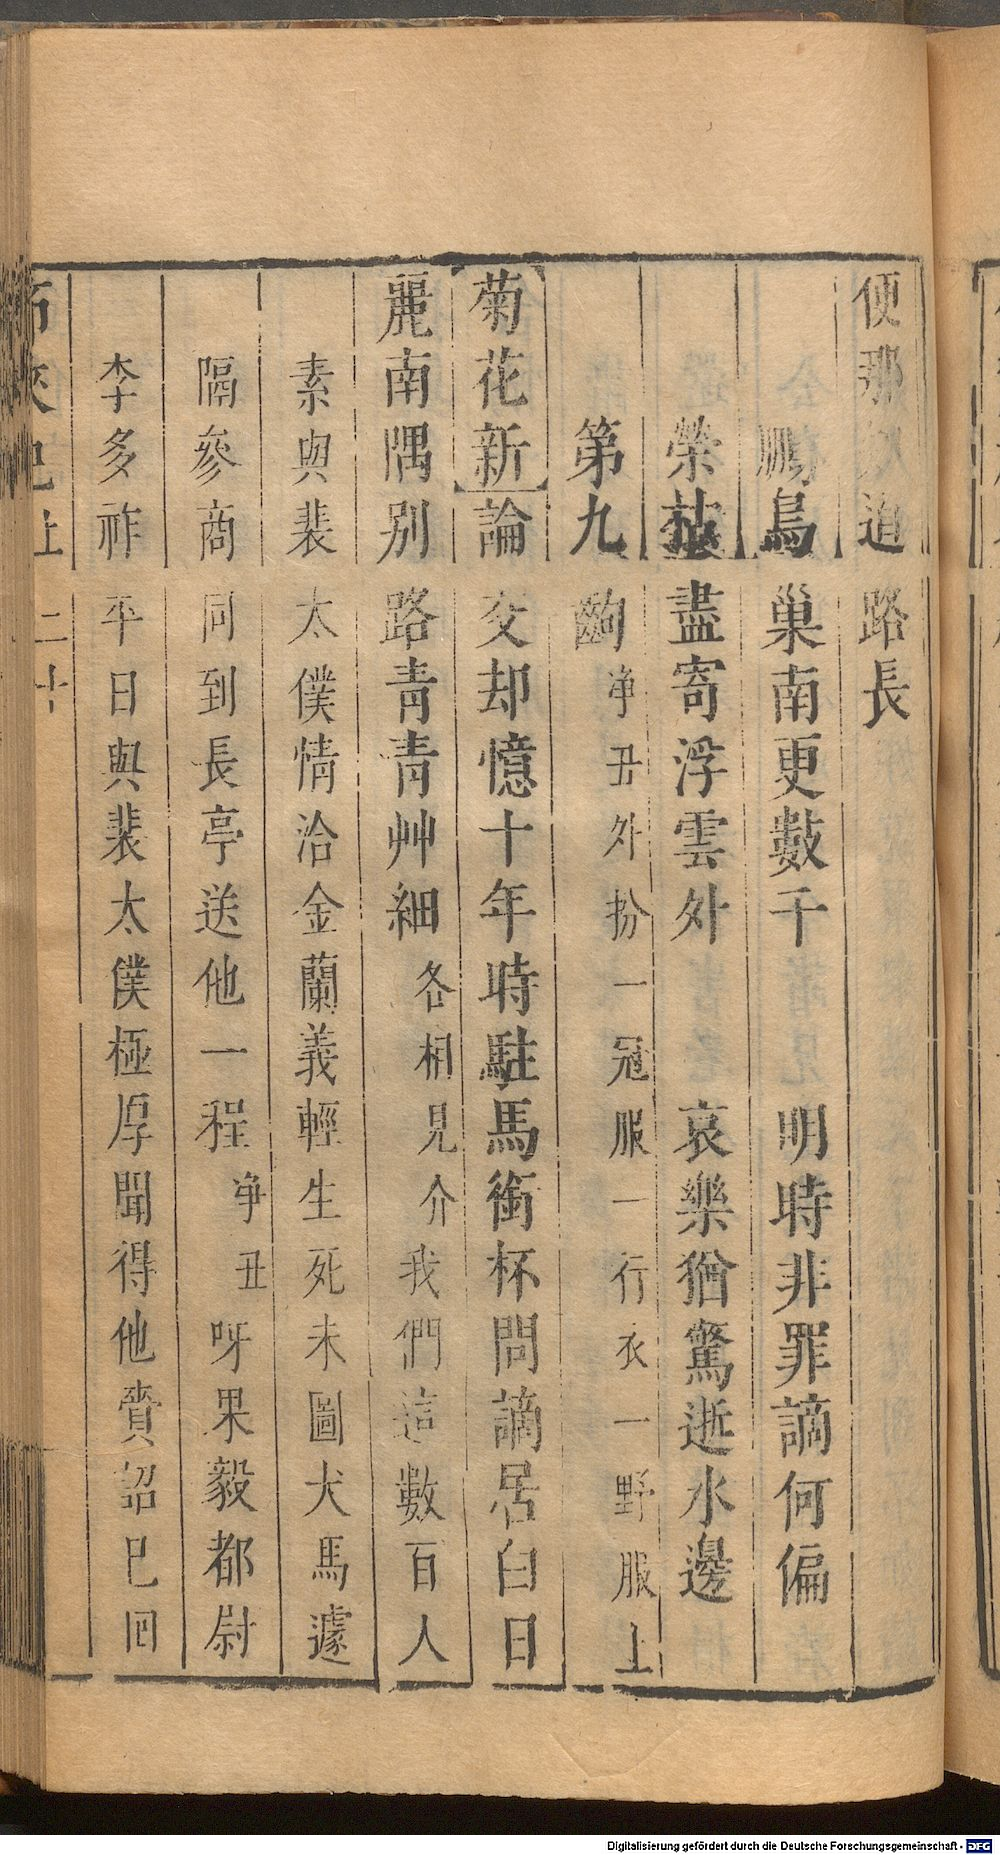 便那人道路長
鵬鳥巢南更數千　明時非罪謫何偏
榮枯盡寄浮雲外　哀樂猶驚逝水邊
第九齣淨丑外扮一冠服一行衣一野服上
菊花新論交却憶十年時駐馬銜杯問謫居白日
麗南隅別路青青艸細各相見介我們這數百人
素與裴太僕情洽金蘭義輕生死未圖犬馬遽
隔參商同到長亭送他一程淨丑呀果毅都尉
李多祚平日與裴太僕極厚聞得他賫詔已回
二十
Digitalisierung gefördert durch die Deutsche Forschungsgemeinschaft - DFG